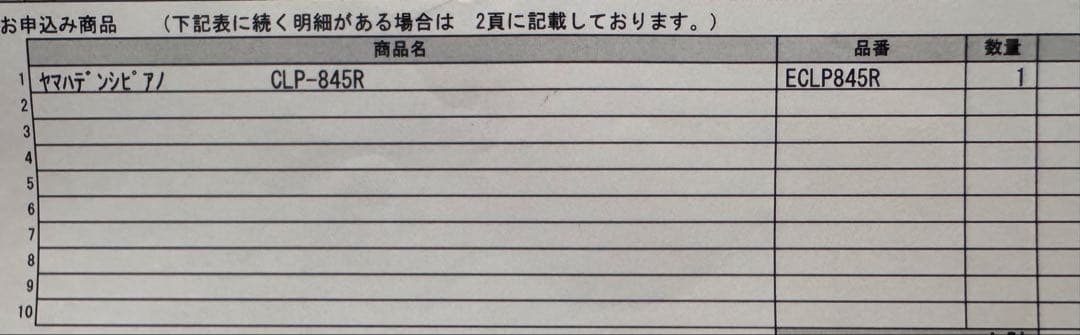 お申込み商品　（下記表に続く明細がある場合は　2頁に記載しております。）
商品名　品番　数量
1 ﾔﾏﾊﾃﾞﾝｼﾋﾟｱﾉ　CLP-845R　ECLP845R　1
2
3
4
5
6
7
8
9
10